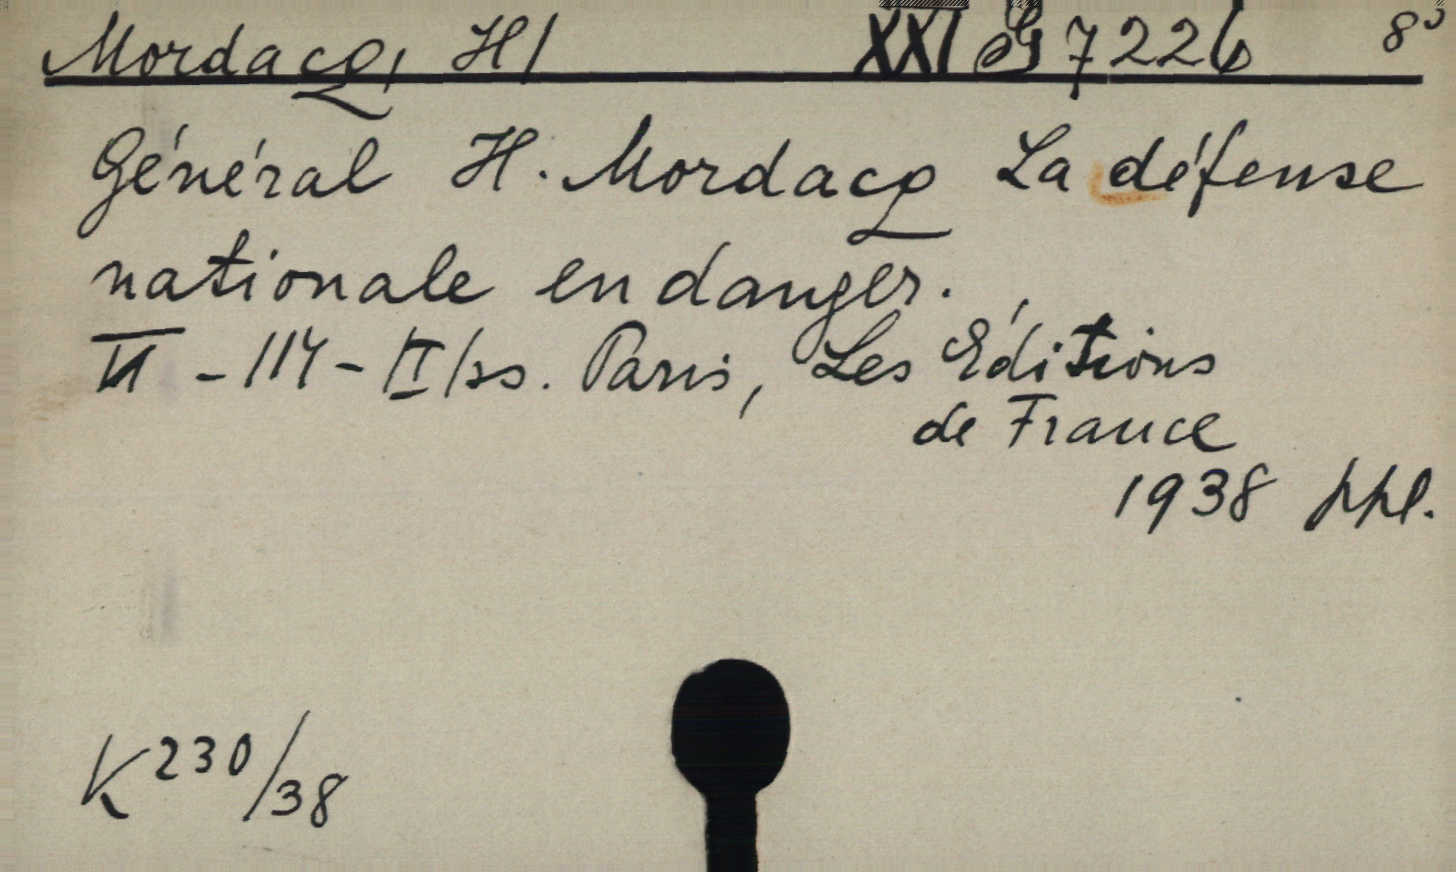 Mordacq, H/ XXI G 7226 8°
Général H. Mordacq La défense
nationale en danger.
VI - 114 - /II/ss. Paris, Les Éditions
de France
1938 ppl.
K 230/38